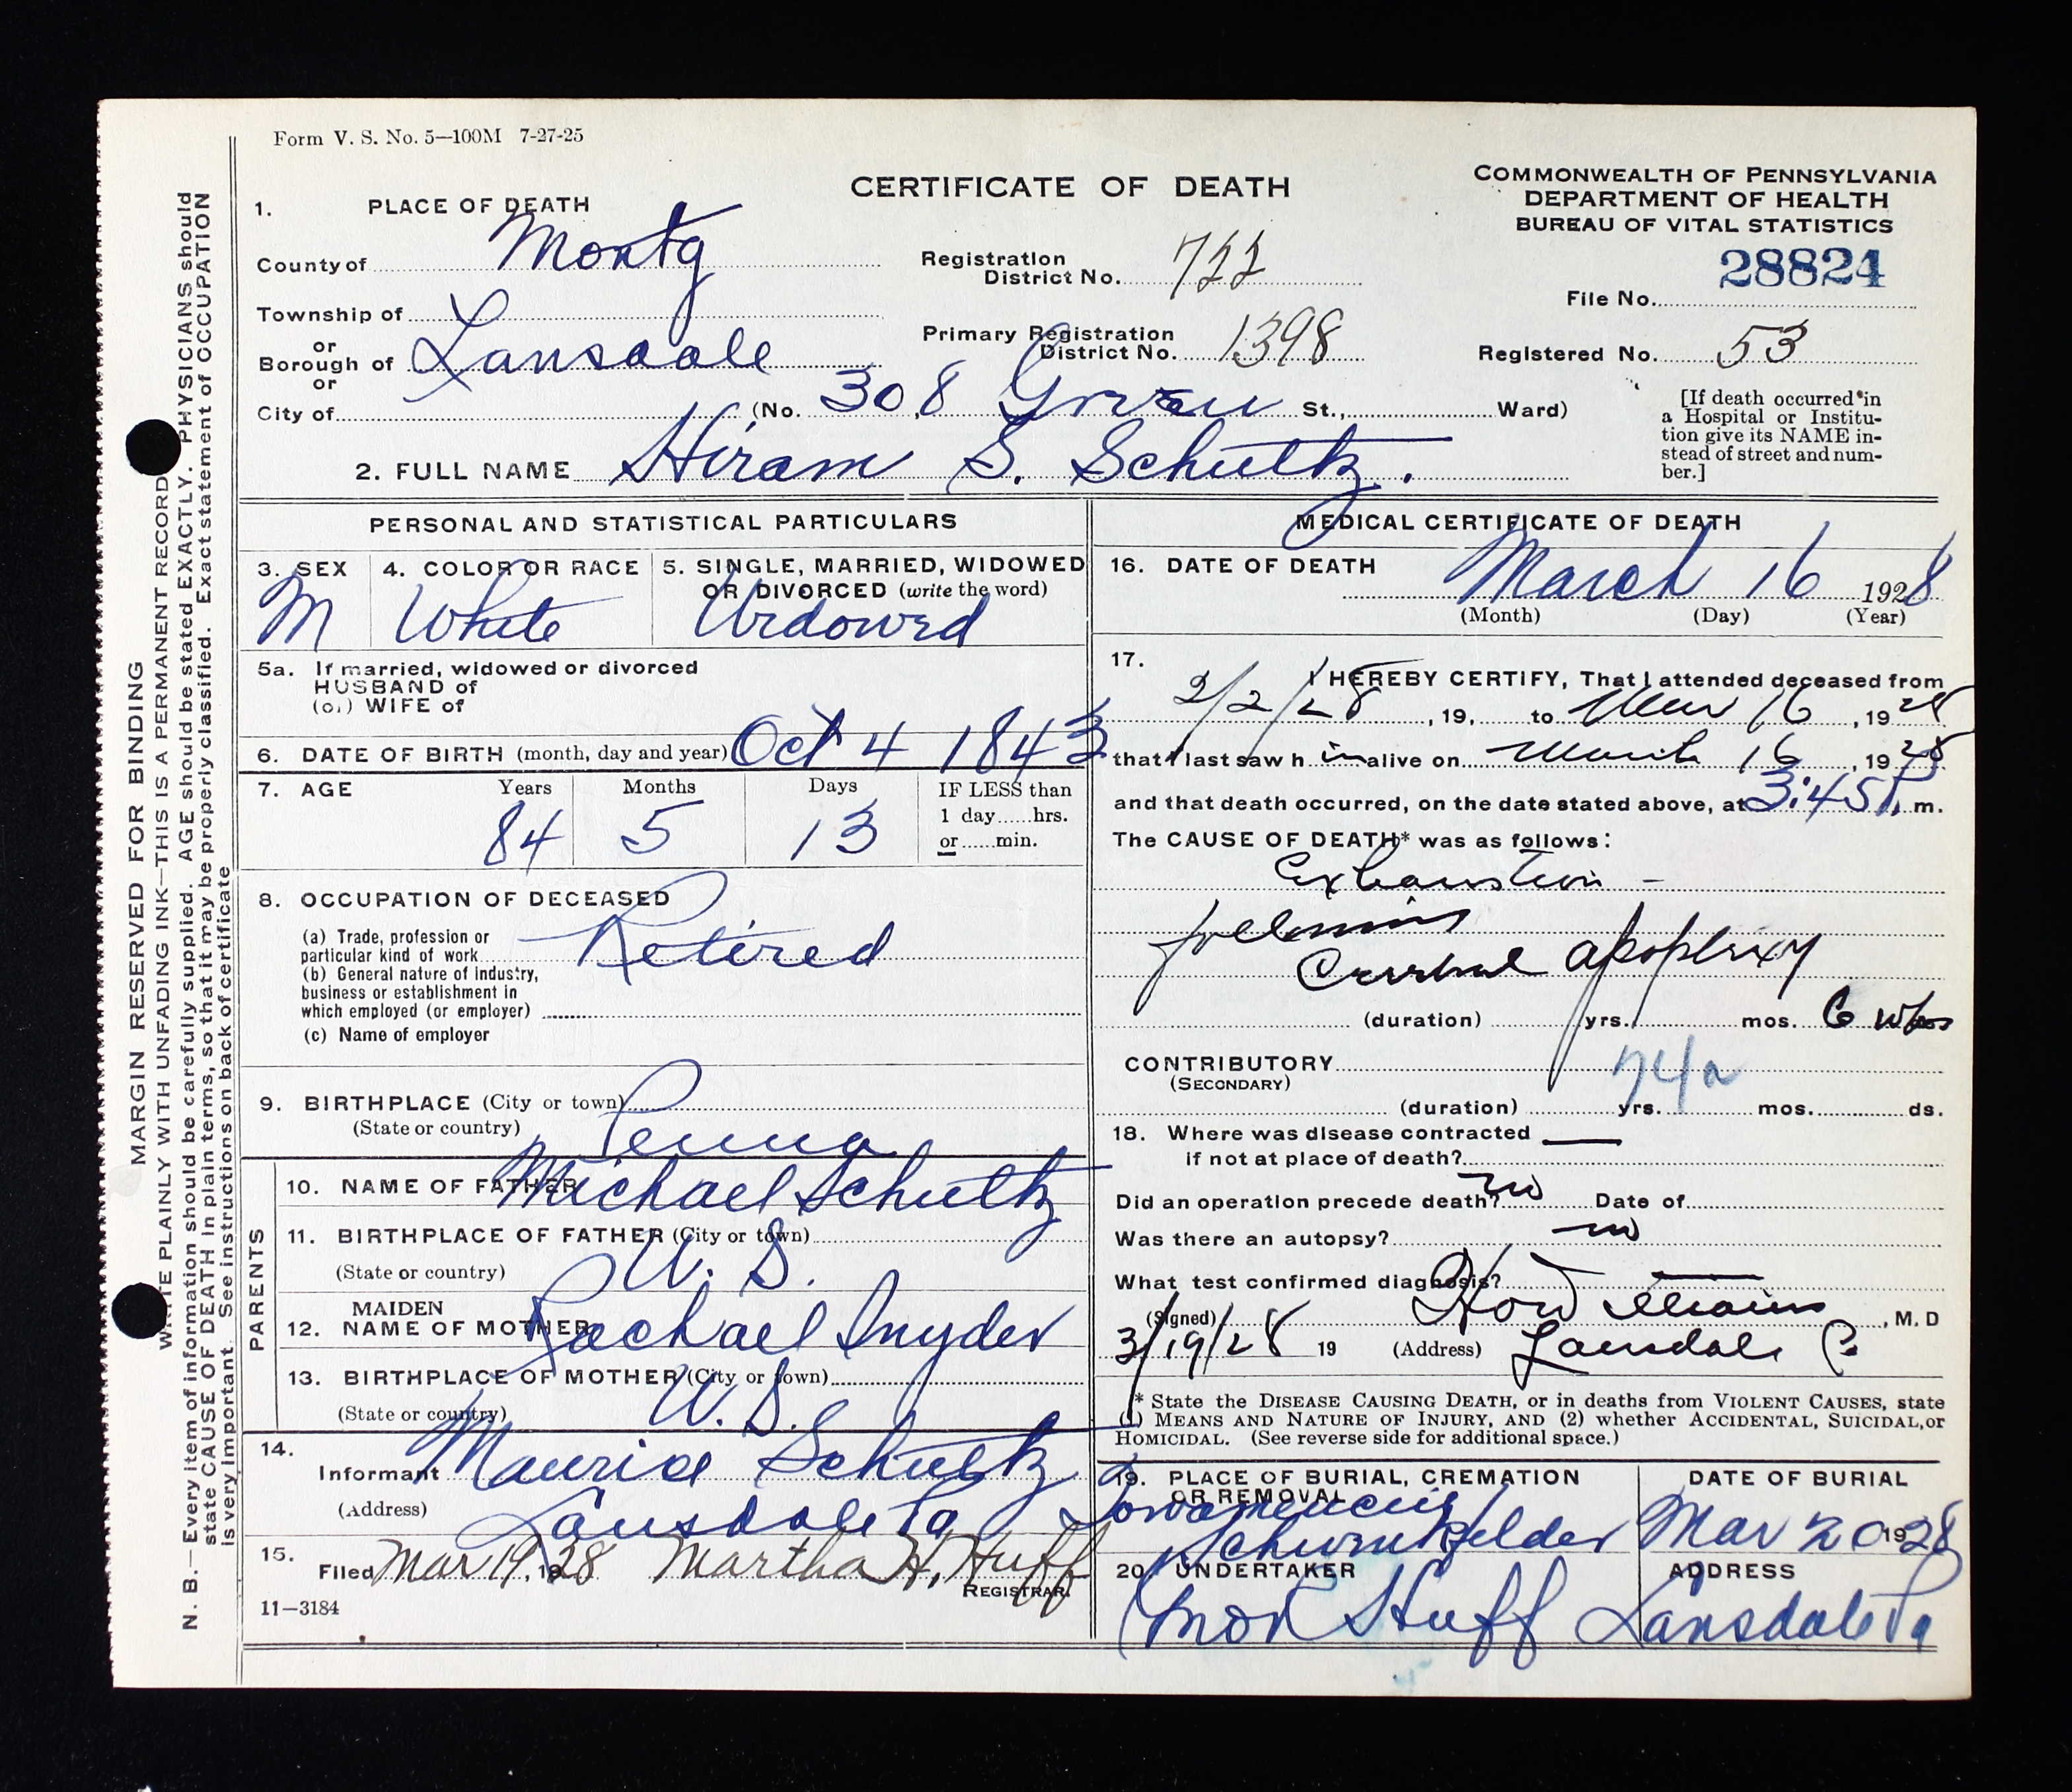 Form V. S. No. 5—100M 7-27-25
CERTIFICATE OF DEATH
COMMONWEALTH OF PENNSYLVANIA
DEPARTMENT OF HEALTH
BUREAU OF VITAL STATISTICS
1. PLACE OF DEATH
County of Montg
Registration District No. 722
File No. 28824
Township of
or
Borough of Lansdale
Primary Registration District No. 1398
Registered No. 53
or
City of (No. 308 Green St., Ward)
[If death occurred in
a Hospital or Institu-
tion give its NAME in-
stead of street and num-
ber.]
2. FULL NAME Hiram S. Schultz.
PERSONAL AND STATISTICAL PARTICULARS
3. SEX
M
4. COLOR OR RACE
White
5. SINGLE, MARRIED, WIDOWED
OR DIVORCED (write the word)
Widowed
5a. If married, widowed or divorced
HUSBAND of
(or) WIFE of
6. DATE OF BIRTH (month, day and year) Oct 4 1843
7. AGE
Years Months Days
84 5 13
IF LESS than
1 day......hrs.
or......min.
8. OCCUPATION OF DECEASED
(a) Trade, profession or
particular kind of work Retired
(b) General nature of industry,
business or establishment in
which employed (or employer)
(c) Name of employer
9. BIRTHPLACE (City or town)
(State or country) Penna
PARENTS
10. NAME OF FATHER Michael Schultz
11. BIRTHPLACE OF FATHER (City or town)
(State or country) U. S.
12. MAIDEN NAME OF MOTHER Rachael Snyder
13. BIRTHPLACE OF MOTHER (City or town)
(State or country) U. S.
14.
Informant Maurice Schultz
(Address) Lansdale Pa
15.
Filed Mar 19, 1928 Martha H. Huff
REGISTRAR.
11—3184
MEDICAL CERTIFICATE OF DEATH
16. DATE OF DEATH
March 16 1928
(Month) (Day) (Year)
17.
I HEREBY CERTIFY, That I attended deceased from
2/2/28, 19, to Mar 16, 1928
that I last saw him alive on March 16, 1928
and that death occurred, on the date stated above, at 3:45 P. m.
The CAUSE OF DEATH* was as follows:
Exhaustion —
following
Cerebral apoplexy
(duration) yrs. mos. 6 wks
CONTRIBUTORY
(SECONDARY)
74a
(duration) yrs. mos. ds.
18. Where was disease contracted
if not at place of death?
Did an operation precede death? no Date of
Was there an autopsy? no
What test confirmed diagnosis?
(Signed) , M. D
3/19/28 19 (Address) Lansdale Pa
* State the DISEASE CAUSING DEATH, or in deaths from VIOLENT CAUSES, state
(1) MEANS AND NATURE OF INJURY, AND (2) whether ACCIDENTAL, SUICIDAL, or
HOMICIDAL. (See reverse side for additional space.)
19. PLACE OF BURIAL, CREMATION
OR REMOVAL
Towamencin
Schwenkfelder
DATE OF BURIAL
Mar 20 1928
20. UNDERTAKER
Huff
ADDRESS
Lansdale Pa
MARGIN RESERVED FOR BINDING
WRITE PLAINLY WITH UNFADING INK—THIS IS A PERMANENT RECORD
N. B.—Every item of information should be carefully supplied. AGE should be stated EXACTLY. PHYSICIANS should
state CAUSE OF DEATH in plain terms, so that it may be properly classified. Exact statement of OCCUPATION
is very important. See instructions on back of certificate